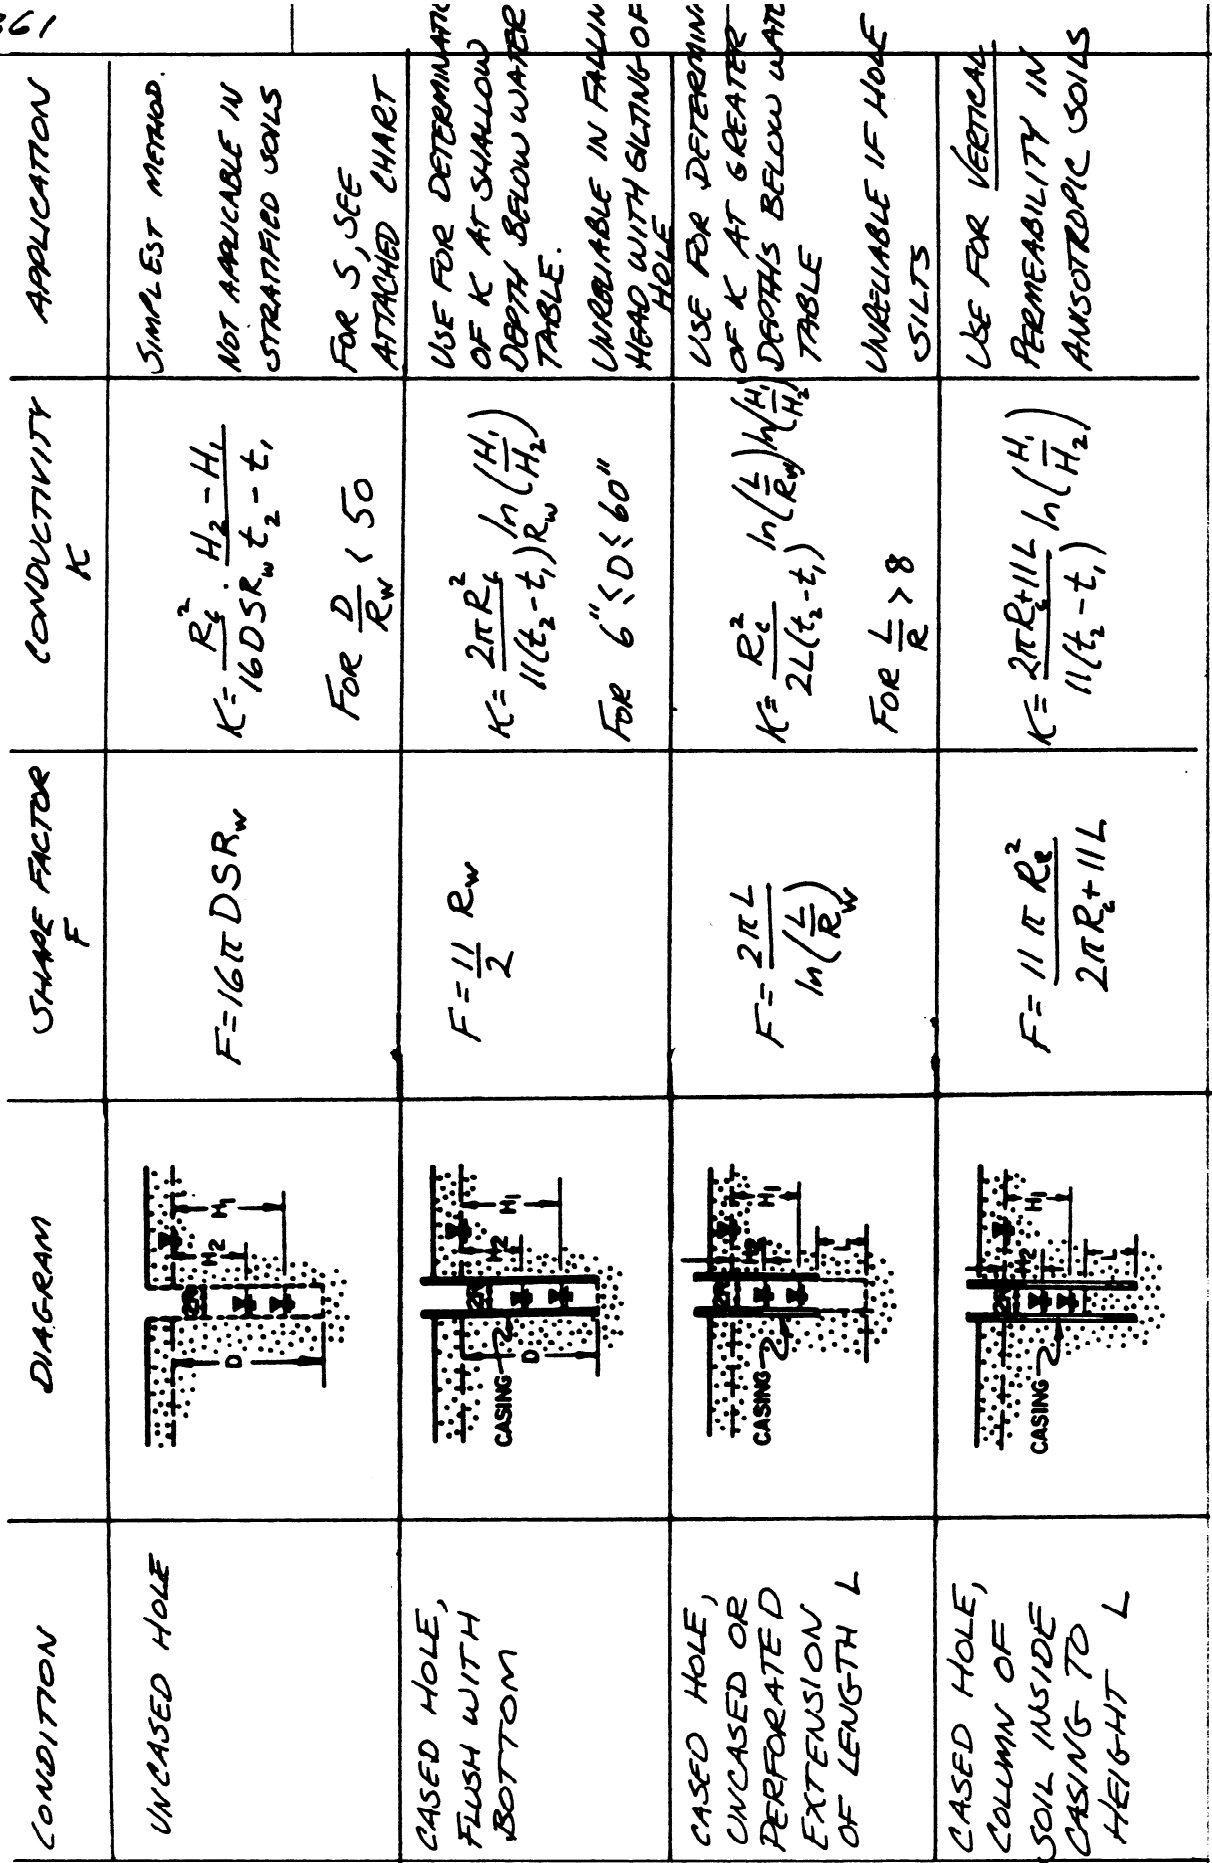 361
CONDITION
DIAGRAM
SHAPE FACTOR
F
CONDUCTIVITY
K
APPLICATION
UNCASED HOLE
D
2R
H2
H1
F=16πDSRw
K= Rc² / 16DSRw · H2-H1 / t2-t1
FOR D/Rw < 50
SIMPLEST METHOD.
NOT APPLICABLE IN
STRATIFIED SOILS
FOR S, SEE
ATTACHED CHART
CASED HOLE,
FLUSH WITH
BOTTOM
CASING
D
2R
H2
H1
F= 11/2 Rw
K= 2πRc² / 11(t2-t1)Rw ln(H1/H2)
FOR 6"≤D≤60"
USE FOR DETERMINATIO
OF K AT SHALLOW
DEPTH BELOW WATER
TABLE.
UNRELIABLE IN FALLIN
HEAD WITH SILTING OF
HOLE
CASED HOLE,
UNCASED OR
PERFORATED
EXTENSION
OF LENGTH L
CASING
2R
H2
H1
L
F= 2πL / ln(L/Rw)
K= Rc² / 2L(t2-t1) ln(L/Rw) ln(H1/H2)
FOR L/R > 8
USE FOR DETERMIN
OF K AT GREATER
DEPTHS BELOW WATE
TABLE
UNRELIABLE IF HOLE
SILTS
CASED HOLE,
COLUMN OF
SOIL INSIDE
CASING TO
HEIGHT L
CASING
2R
H2
H1
L
F= 11πRc² / 2πRc+11L
K= 2πRc+11L / 11(t2-t1) ln(H1/H2)
USE FOR VERTICAL
PERMEABILITY IN
ANISOTROPIC SOILS